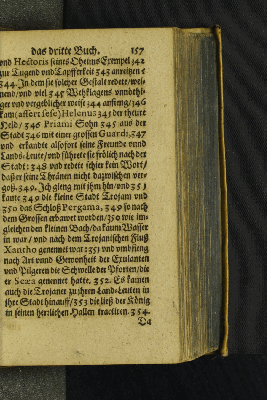 das dritte Buch. 157
und Hectoris seines Oheims Exempel 342
zur Tugend und Tapfferkeit 343 anreitzen c
344. In dem sie solcher Gestalt redete/wei-
nend/ und viel 345 Wehklagens unnöthi-
ger und vergeblicher weise 344 anfieng/ 346
kam (affort sese) Helenus 345 der theure
Held/ 346 Priami Sohn 345 aus der
Stadt 346 mit einer grossen Guardi, 347
und erkandte alsofort seine Freunde unnd
Lands-Leute/ und führete sie frölich nach der
Stadt: 348 und redete schier kein Wort/
daß er seine Thränen nicht dazwischen ver-
goß. 349. Ich gieng mit ihm hin/ und 351
kante 349 die kleine Stadt Trojam und
350 das Schloß Pergama, 349 so nach
dem Grossen erbawet worden/ 350 wie im-
gleichen den kleinen Bach/ da kaum Wasser
in war/ und nach dem Trojanischen Fluß
Xantho genennet war 351 und umbfieng
nach Art unnd Gewonheit der Exulanten
und Pilgeren die Schwelle der Pforten/ die
er Scæa genennet hatte. 352. Es kamen
auch die Trojaner zu ihren Land-Leuten in
ihre Stadt hinauff/ 353 die ließ der König
in seinen herrlichen Hallen tractiren. 354.
Da